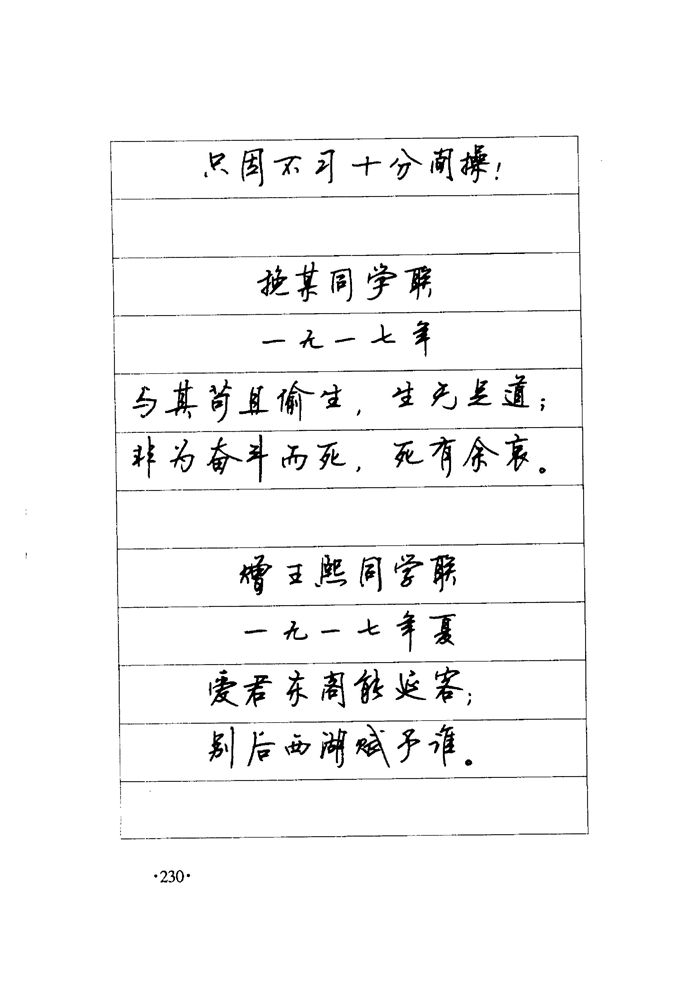 只因不习十分间操！
挽某同学联
一九一七年
与其苟且偷生，生无是道；
非为奋斗而死，死有余哀。
赠王熙同学联
一九一七年夏
爱君东阁能延客；
别后西湖赋予谁。
·230·